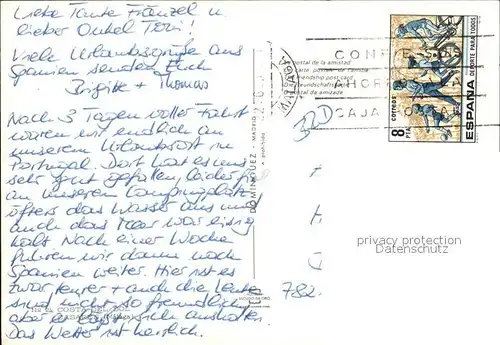 Liebe Tante Fränzel u.
lieber Onkel Toni!
Viele Urlaubsgrüße aus
Spanien senden Euch
Brigitte + Thomas
Nach 3 Tagen voller Fahrt
waren wir endlich an
unserem Urlaubsort in
Portugal. Dort hat es uns
sehr gut gefallen, leider fiel
an unserem Campingplatz
öfters das Wasser aus und
auch das Meer war eisig
kalt. Nach einer Woche
fuhren wir dann nach
Spanien weiter. Hier ist es
zwar teurer + auch die Leute
sind nicht so freundlich
aber es lässt sich aushalten.
Das Wetter ist herrlich.
COSTA DEL SOL
DOMINGUEZ - MADRID
postal de la amistad
carte postale de l'amitié
friendship post card
freundschaftskarte
da amizade
CON
AHOR
CAJA
32D
CORREOS
8 PTA
ESPAÑA
DEPORTE PARA TODOS
privacy protection
watermark
782